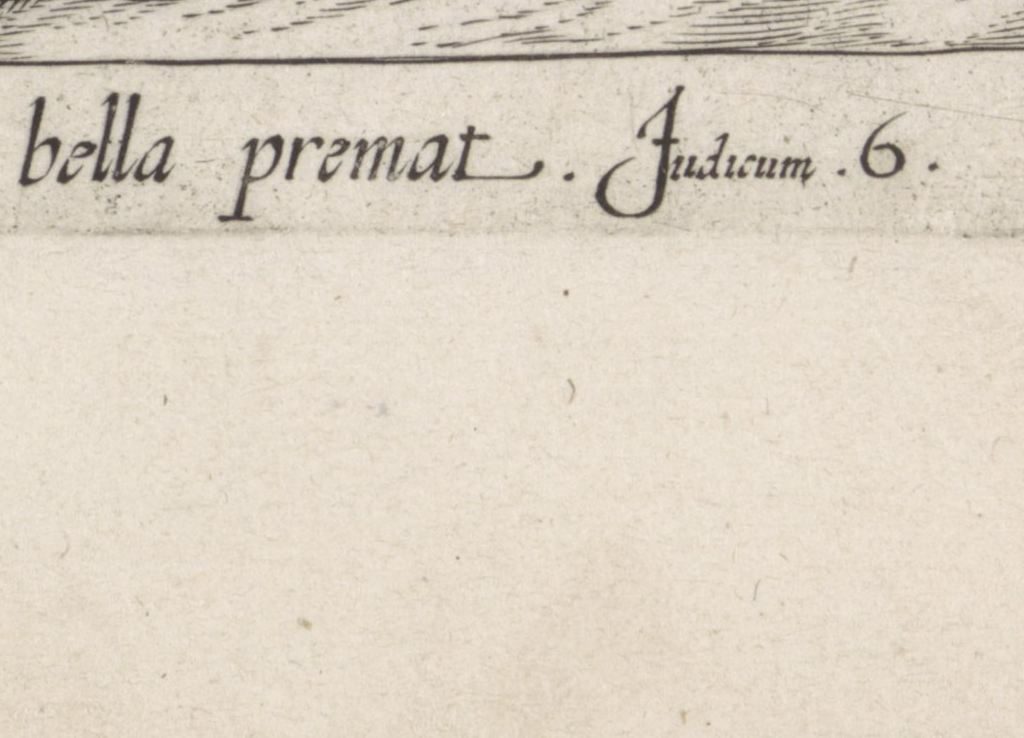 bella premat. Judicum. 6.